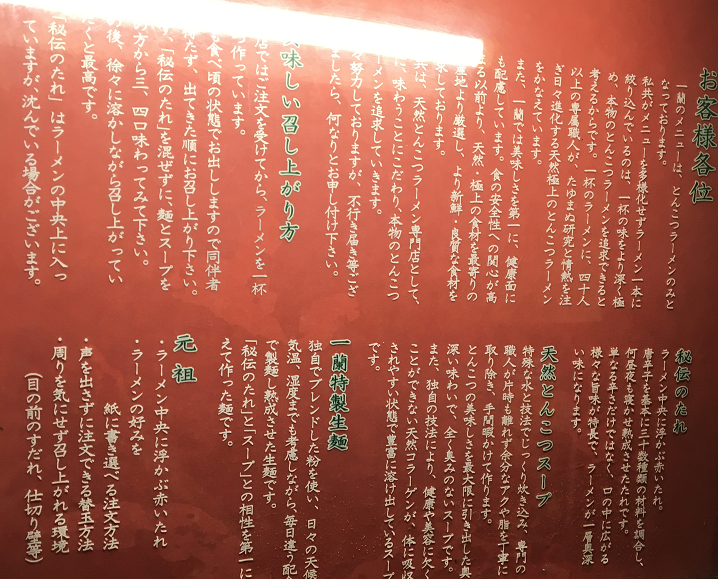 お客様各位
一蘭のメニューは、とんこつラーメンのみと
なっております。
私共がメニューを多様化せずラーメン一本に
絞り込んでいるのは、一杯の味をより深く極
め、本物のとんこつラーメンを追求できると
考えるからです。一杯のラーメンに、四十人
以上の専属職人が、たゆまぬ研究と情熱を注
ぎ日々進化する天然極上のとんこつラーメン
をかなえています。
また、一蘭では美味しさを第一に、健康面に
も配慮しています。食の安全性への関心が高
る以前より、天然・極上の食材を最寄りの
地より厳選し、より新鮮、良質な食材を
求しております。
共は、天然とんこつラーメン専門店として、
に、味わうことにこだわり、本物のとんこつ
ーメンを追求していきます。
々努力しておりますが、不行き届き等ござ
ましたら、何なりとお申し付け下さい。
味しい召し上がり方
店ではご注文を受けてから、ラーメンを一杯
つ作っています。
も食べ頃の状態でお出ししますので同伴者
待たず、出てきた順にお召し上がり下さい。
ず、「秘伝のたれ」を混ぜずに、麺とスープを
の方から三、四口味わってみて下さい。
の後、徐々に溶かしながら召し上がってい
くと最高です。
「秘伝のたれ」はラーメンの中央上に入っ
ていますが、沈んでいる場合がございます。
秘伝のたれ
ラーメン中央に浮かぶ赤いたれ。
唐辛子を基本に三十数種類の材料を調合し、
何昼夜も寝かせ熟成させたたれです。
単なる辛さだけではなく、口の中に広がる
様々な旨味が特長で、ラーメンが一層奥深
い味になります。
天然とんこつスープ
特殊な水と技法でじっくり炊き込み、専門の
職人が片時も離れず余分なアクや脂を丁寧に
取り除き、手間暇かけて作ります。
とんこつの美味しさを最大限に引き出した奥
深い味わいで、全く臭みのないスープです。
また、独自の技法により、健康や美容に欠く
ことができない天然コラーゲンが、体に吸収
されやすい状態で豊富に溶け出しているスープ
です。
一蘭特製生麺
独自でブレンドした粉を使い、日々の天候
気温、湿度までも考慮しながら、毎日違う配合
で製麺し熟成させた生麺です。
「秘伝のたれ」と「スープ」との相性を第一に
えて作った麺です。
元祖
・ラーメン中央に浮かぶ赤いたれ
・ラーメンの好みを
紙に書き選べる注文方法
・声を出さずに注文できる替玉方法
・周りを気にせず召し上がれる環境
（目の前のすだれ、仕切り壁等）